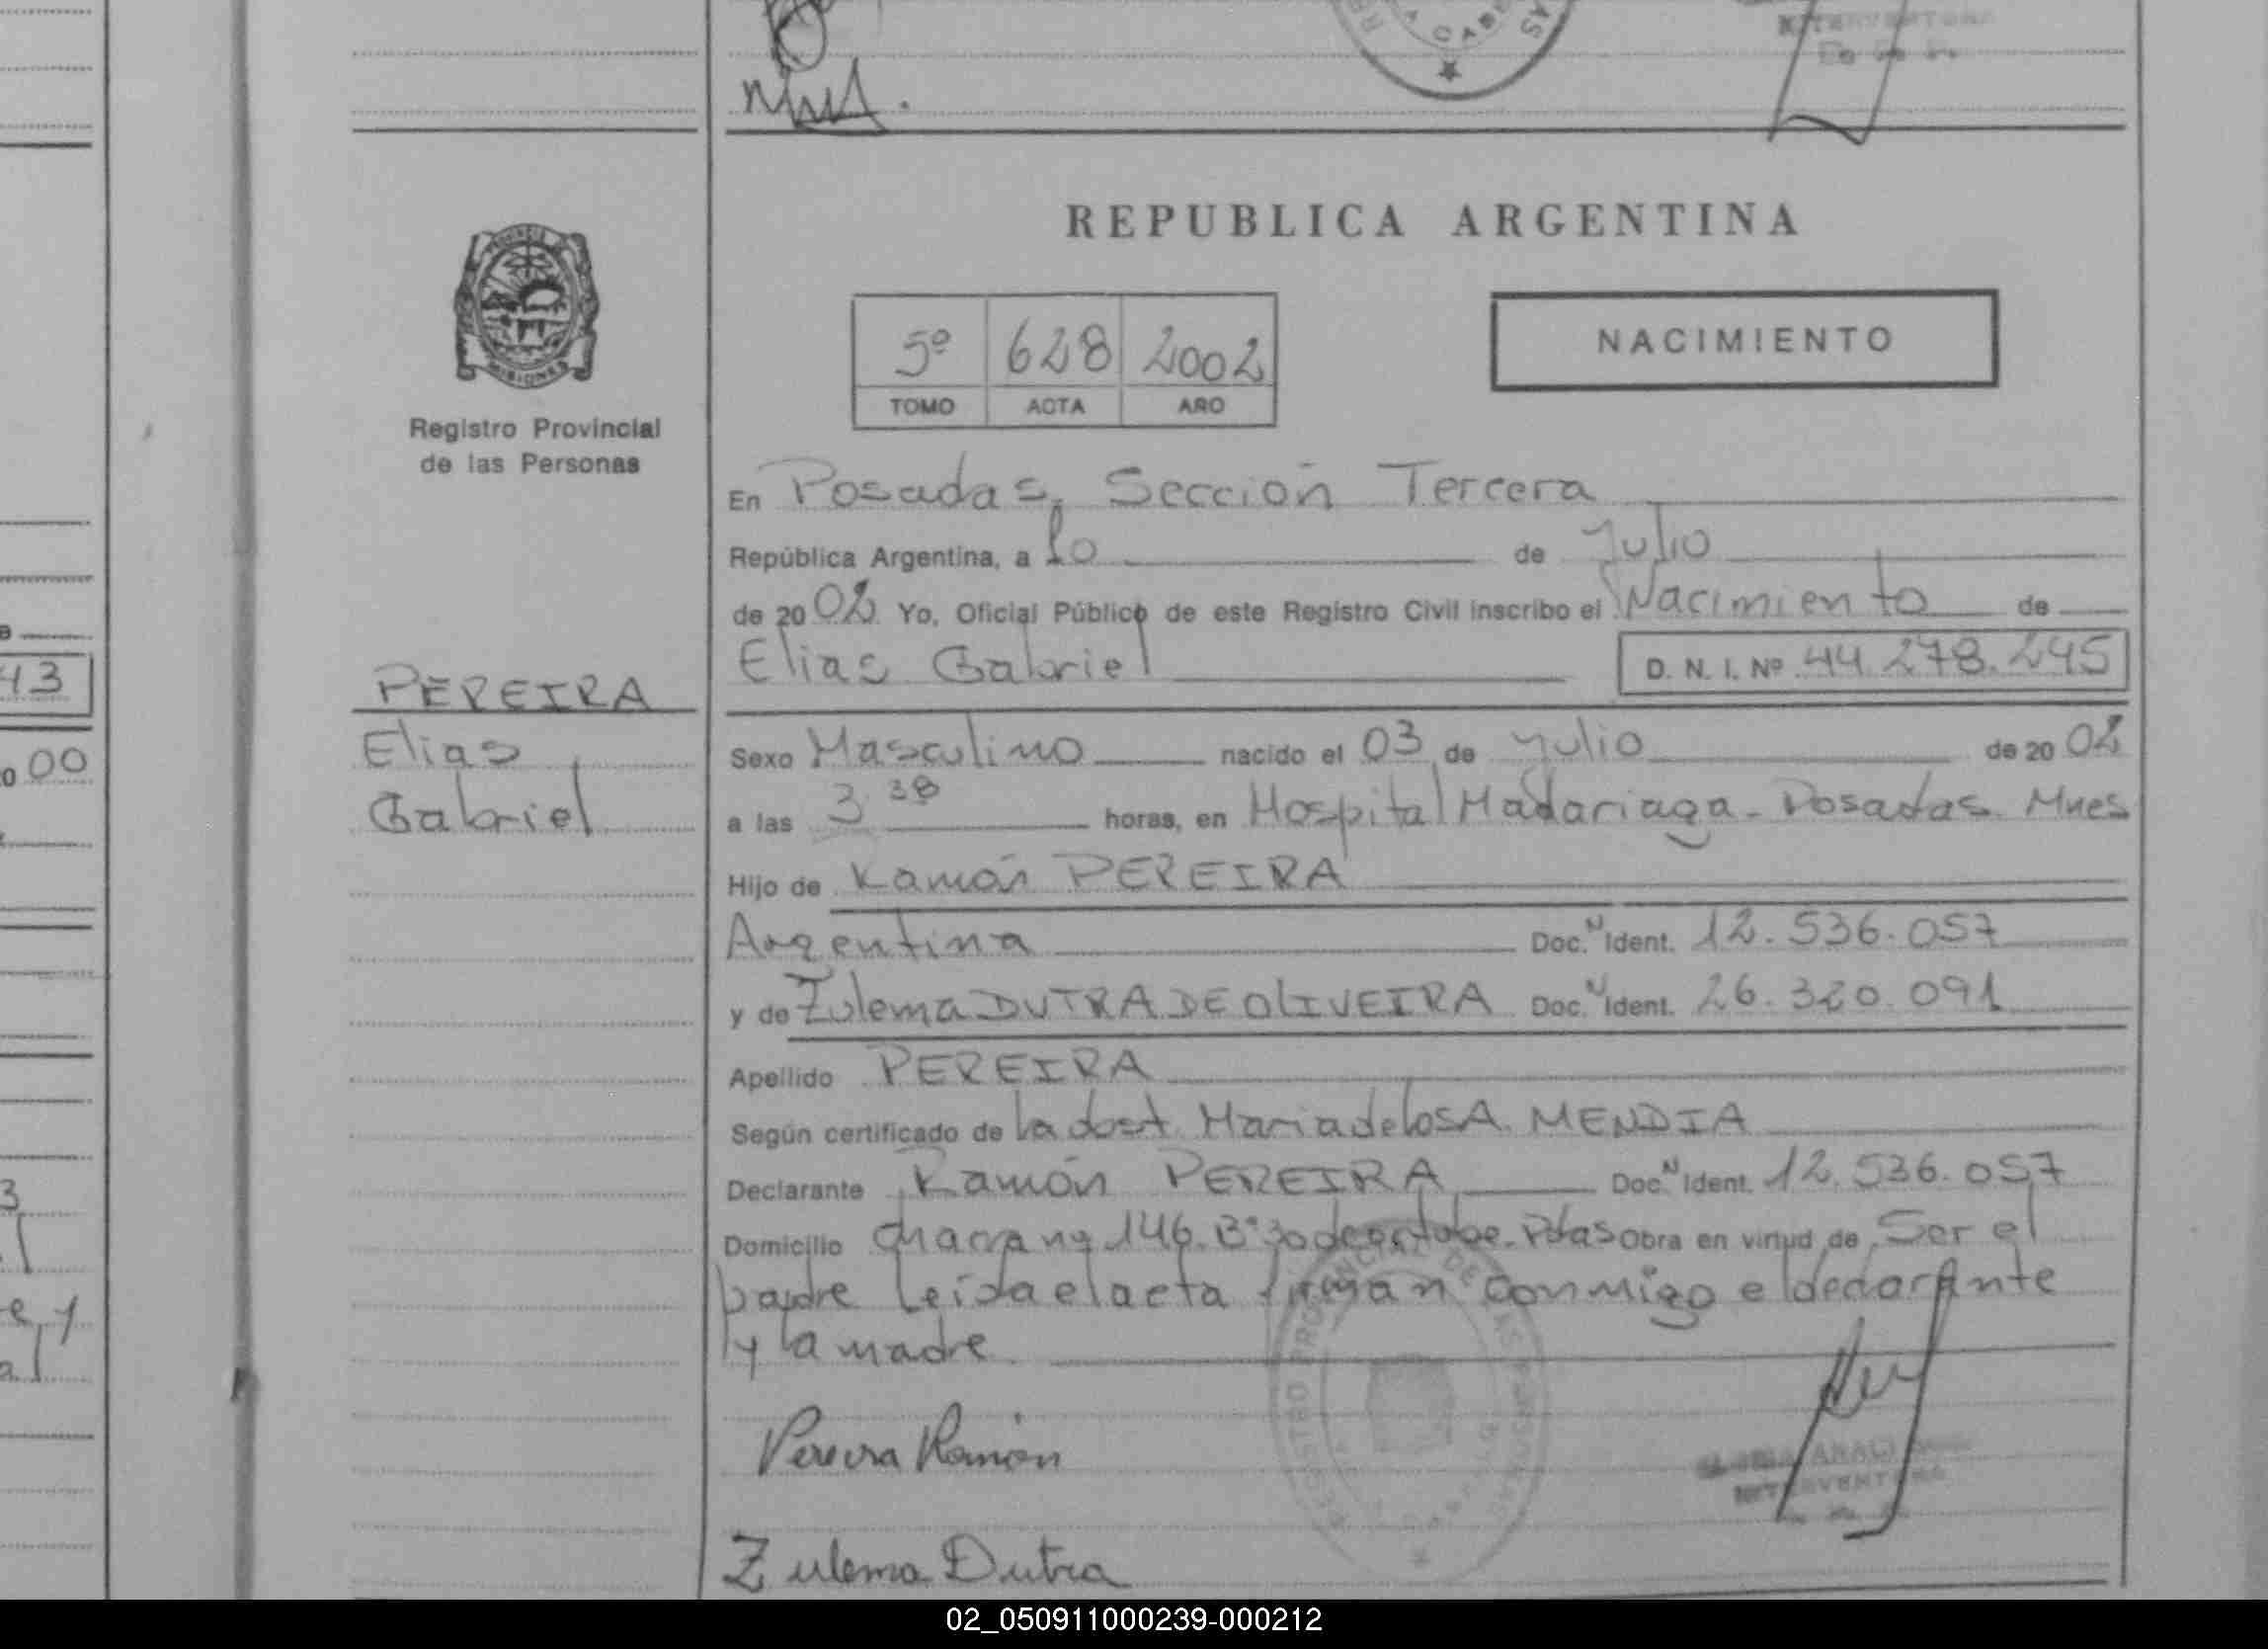 REPUBLICA ARGENTINA
5º 628 2002
TOMO ACTA AÑO
NACIMIENTO
PROVINCIA DE
MISIONES
Registro Provincial
de las Personas
PEREIRA
Elias
Gabriel
En Posadas, Sección Tercera
República Argentina, a 10 de Julio
de 2002 Yo, Oficial Público de este Registro Civil inscribo el Nacimiento de
Elias Gabriel D. N. I. Nº 44.278.245
Sexo Masculino nacido el 03 de Julio de 2002
a las 3 38 horas, en Hospital Madariaga - Posadas. Mnes
Hijo de Ramón PEREIRA
Argentina Doc. N Ident. 12.536.057
y de Zulema DUTRA DE OLIVEIRA Doc. N Ident. 26.320.091
Apellido PEREIRA
Según certificado de la obst. Maria de los A. MENDIA
Declarante Ramón PEREIRA Doc. N Ident. 12.536.057
Domicilio 146 Bº 30 de octubre - Pdas Obra en virtud de Ser el
padre Leida el acta firman conmigo el declarante
y la madre
Pereira Ramón
INTERVENTORA
Zulema Dutra
43
00
02_050911000239-000212